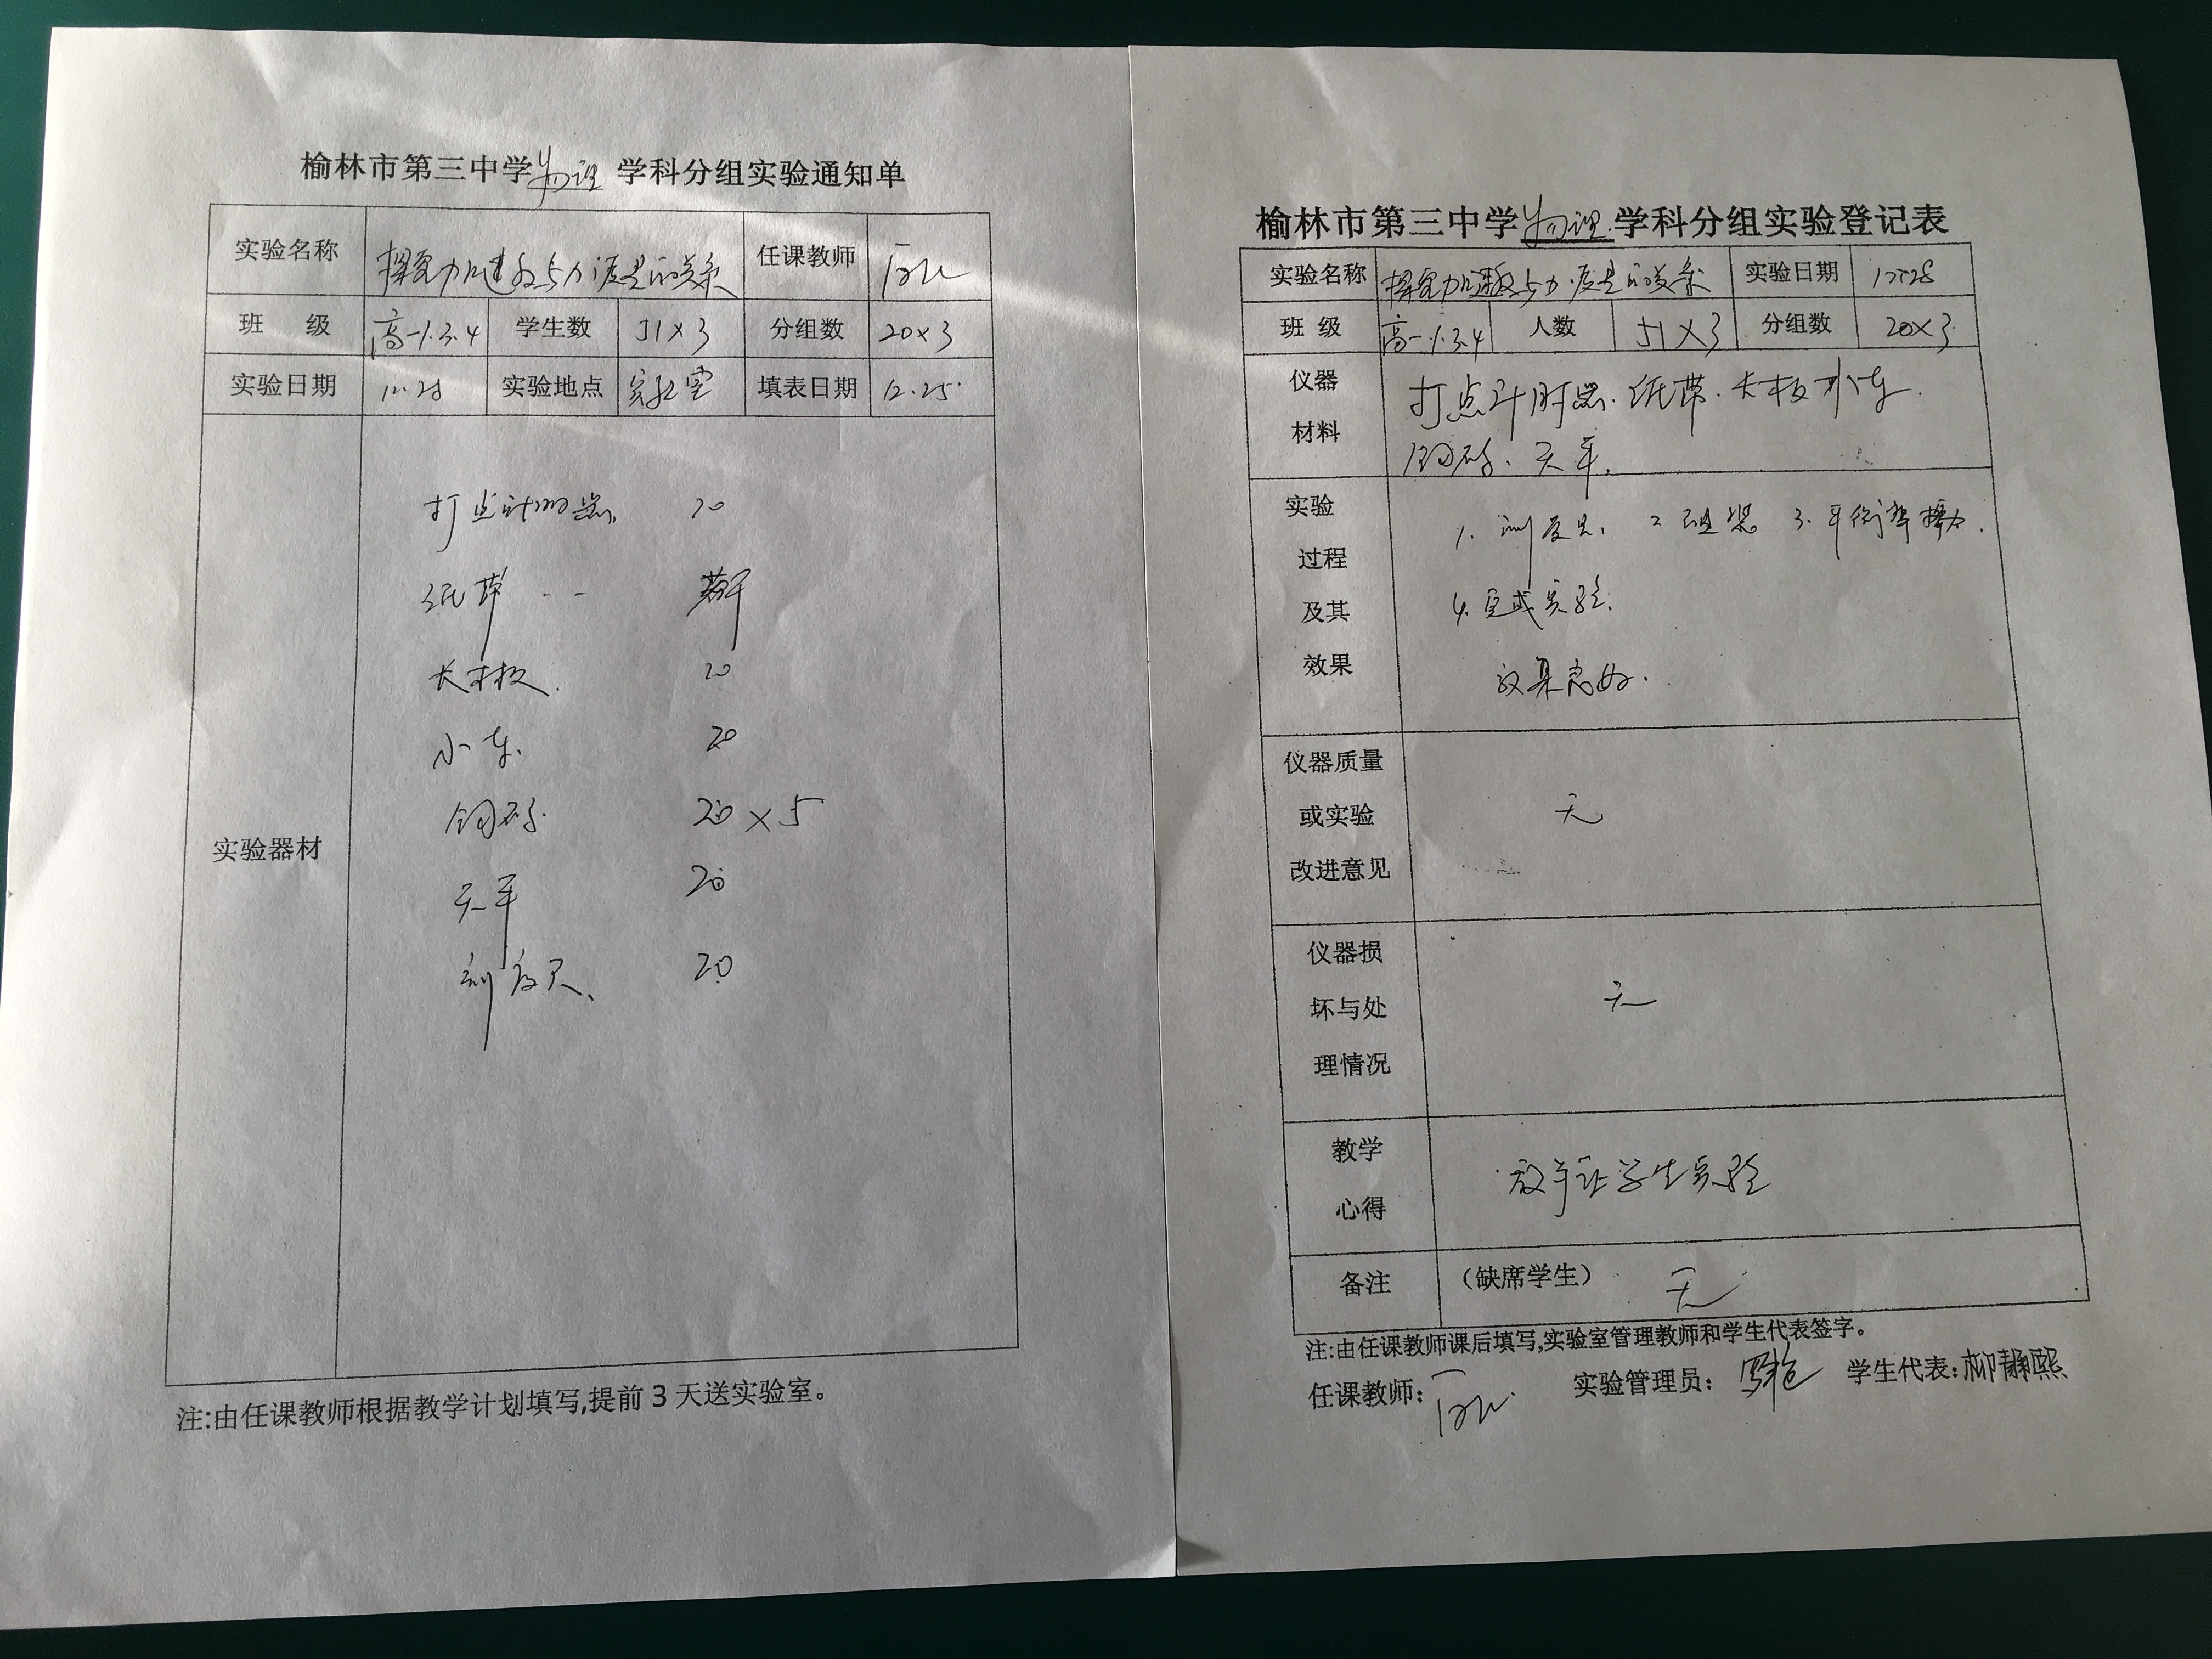 榆林市第三中学物理 学科分组实验通知单
实验名称 探究加速度与力质量的关系 任课教师
班 级 高一1.3.4 学生数 51×3 分组数 20×3
实验日期 12.28 实验地点 实验室 填表日期 12.25
实验器材
打点计时器 20
纸带 若干
长木板 20
小车 20
钩码 20×5
天平 20
刻度尺 20
注:由任课教师根据教学计划填写,提前3天送实验室。
榆林市第三中学物理学科分组实验登记表
实验名称 探究加速度与力.质量的关系 实验日期 12.28
班 级 高一1.3.4 人数 51×3 分组数 20×3
仪器材料 打点计时器.纸带.长木板 小车.
钩码.天平.
实验过程及其效果 1. 测质量 2 组装 3. 平衡摩擦力.
4. 完成实验.
效果良好.
仪器质量或实验改进意见 无
仪器损坏与处理情况 无
教学心得 放手让学生实验
备注 (缺席学生) 无
注:由任课教师课后填写,实验室管理教师和学生代表签字。
任课教师: 实验管理员: 学生代表:柳静熙